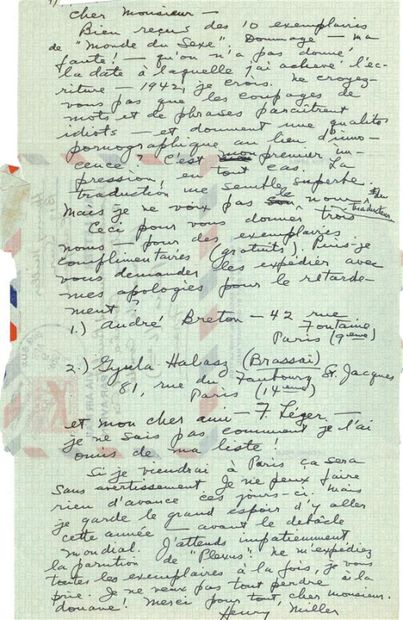 Cher Monsieur –
Bien reçus des 10 exemplaires
de "Monde du Sexe". Dommage – ma
faute! – qu'on n'a pas donné
la date à laquelle j'ai achevé l'éc-
riture – 1942, je crois. Ne croyez-
vous pas que les coupages de
mots et de phrases paraîtront
idiots – et donnent une qualité
pornographique au lieu d'inno-
cence? C'est mon premier im-
pression, en tout cas. La
traduction me semble superbe.
Mais je ne vois pas le nom du traducteur
Ceci pour vous donner trois
noms – pour des exemplaires
complimentaires (gratuits). Puis-je
vous demander les expédier avec
mes apologies pour le retarde-
ment?
1.) André Breton – 42 rue
Fontaine
Paris (9eme)
2.) Gyula Halasz (Brassaï)
81, rue du Faubourg St. Jacques
Paris (14eme)
et mon cher ami – F. Léger. –
je ne sais pas comment je l'ai
omis de ma liste!
Si je viendrai à Paris ça sera
sans avertissement. Je ne peux faire
rien d'avance ces jours-ci. Mais
je garde le grand espoir d'y aller
cette année – avant le debâcle
mondial. J'attends impatiemment
la parution de "Plexus". Ne m'expédiez
toutes les exemplaires à la fois, je vous
prie. Je ne veux pas tout perdre à la
douane! Merci pour tout, cher monsieur.
Henry Miller